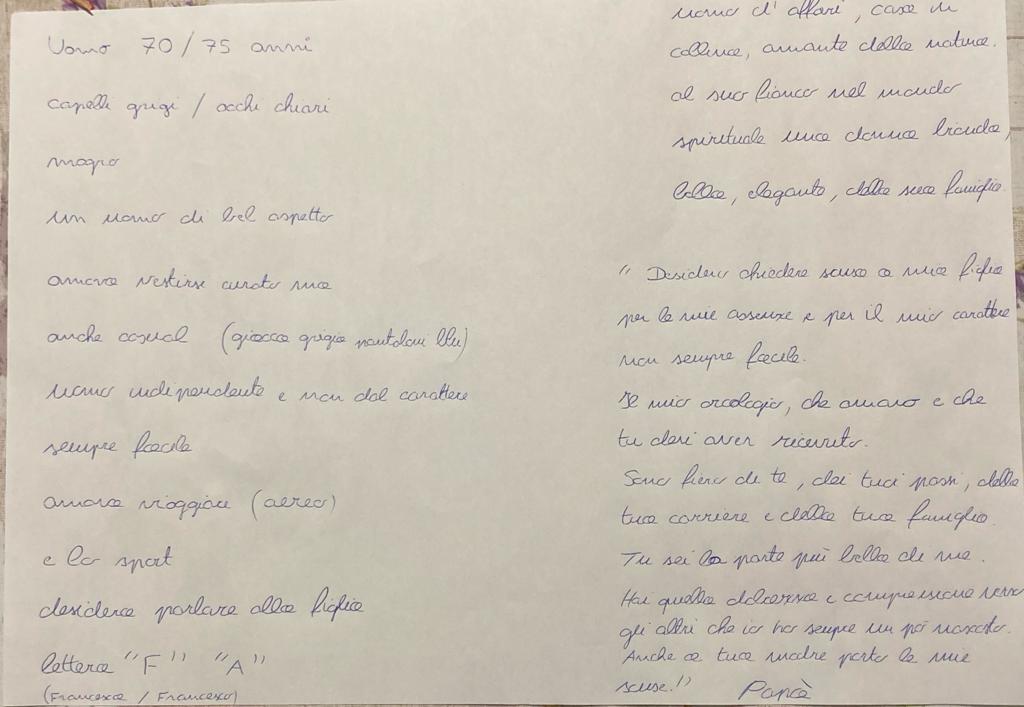 Uomo 70/75 anni
capelli grigi / occhi chiari
magro
un uomo di bel aspetto
amava vestirsi curato ma
anche casual (giacca grigia pantaloni blu)
uomo indipendente e non dal carattere
sempre facile
amava viaggiare (aereo)
e lo sport
desidera parlare alla figlia
lettera "F" "A"
(Francesca / Francesco)
uomo d'affari, casa in
collina, amante della natura.
al suo fianco nel mondo
spirituale una donna bionda,
bella, elegante, della sua famiglia.
"Desidero chiedere scusa a mia figlia
per le mie assenze e per il mio carattere
non sempre facile.
Il mio orologio, che amavo e che
tu devi aver ricevuto.
Sono fiero di te, dei tuoi passi, della
tua carriera e della tua famiglia.
Tu sei la parte più bella di me.
Hai quella dolcezza e comprensione verso
gli altri che io ho sempre un pò nascosto.
Anche a tua madre porto le mie
scuse!" Papà